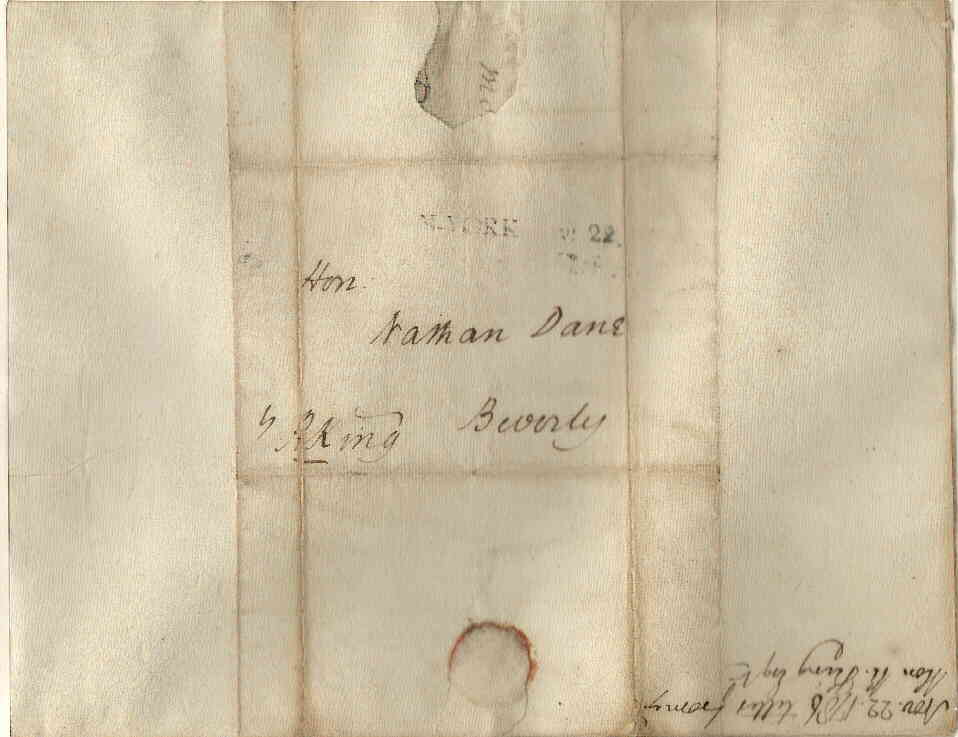 N-YORK 22
Hon
Nathan Dane
R King Beverly
Nov. 22. 1786 letter from
Hon R. King Esqr